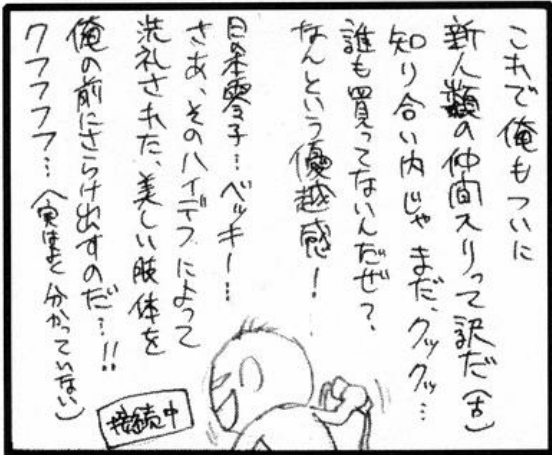 これで俺もついに
新人類の仲間入りって訳だ(古)
知り合い内じゃまだ、クックッ…
誰も買ってないんだぜ?、
なんという優越感!
目の本零子…ベッキー…
さあ、そのハイデフによって
洗礼された、美しい肢体を
俺の前にさらけ出すのだ…!!
クフフフフ…(実はよく分かっていない)
接続中